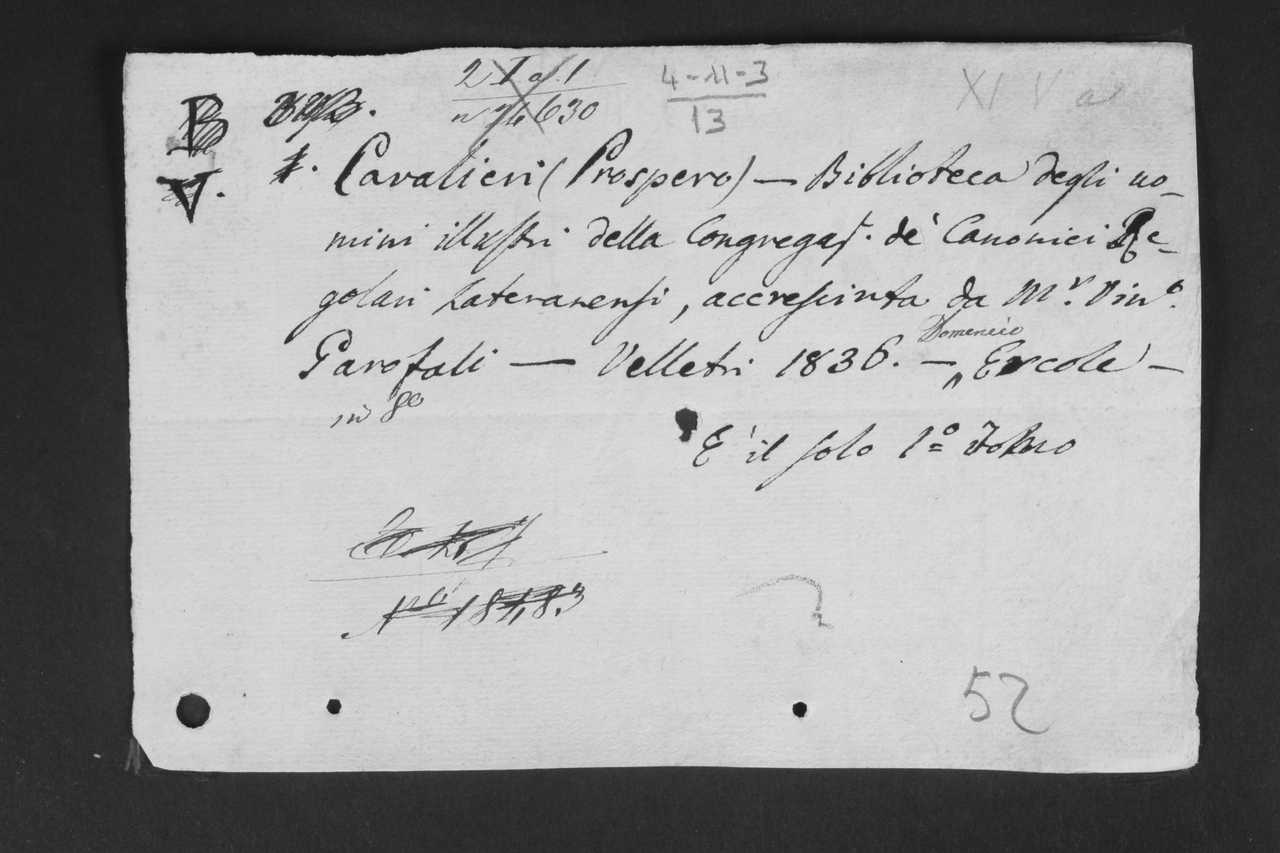 4-11-3
13
XI V a
B
V.
Cavalieri (Prospero) — Biblioteca degli uo-
mini illustri della Congregaz. de' Canonici Re-
golari Lateranensi, accresciuta da Mr. Vinº.
Garofali — Velletri 1836. — Domenico Ercole —
in 8º
E' il solo 1º Tomo
52